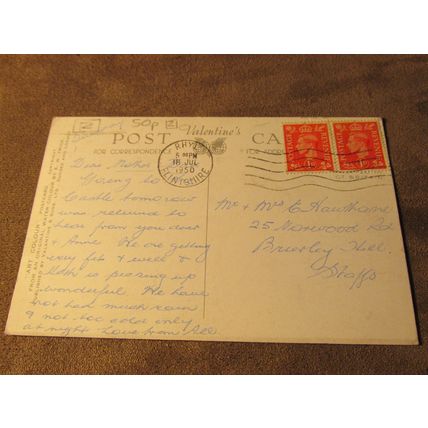 50p 2
Valentine's
POST CA
FOR CORRESPONDENCE FOR ADDRESS
RHYL
5 PM
18 JUL
1950
FLINTSHIRE
POSTAGE REVENUE
POSTAGE REVENUE
Dear Mother
Going to
Castle tomorrow
was relieved to
hear from you dear
& Anne. We are getting
very fit & well &
is picking up
wonderful. We have
not had much rain
& not too cold only
at night. Love from all.
Mr & Mrs E Hawthorne
25 Norwood Rd
Brierley Hill
Staffs
"ART COLOUR"